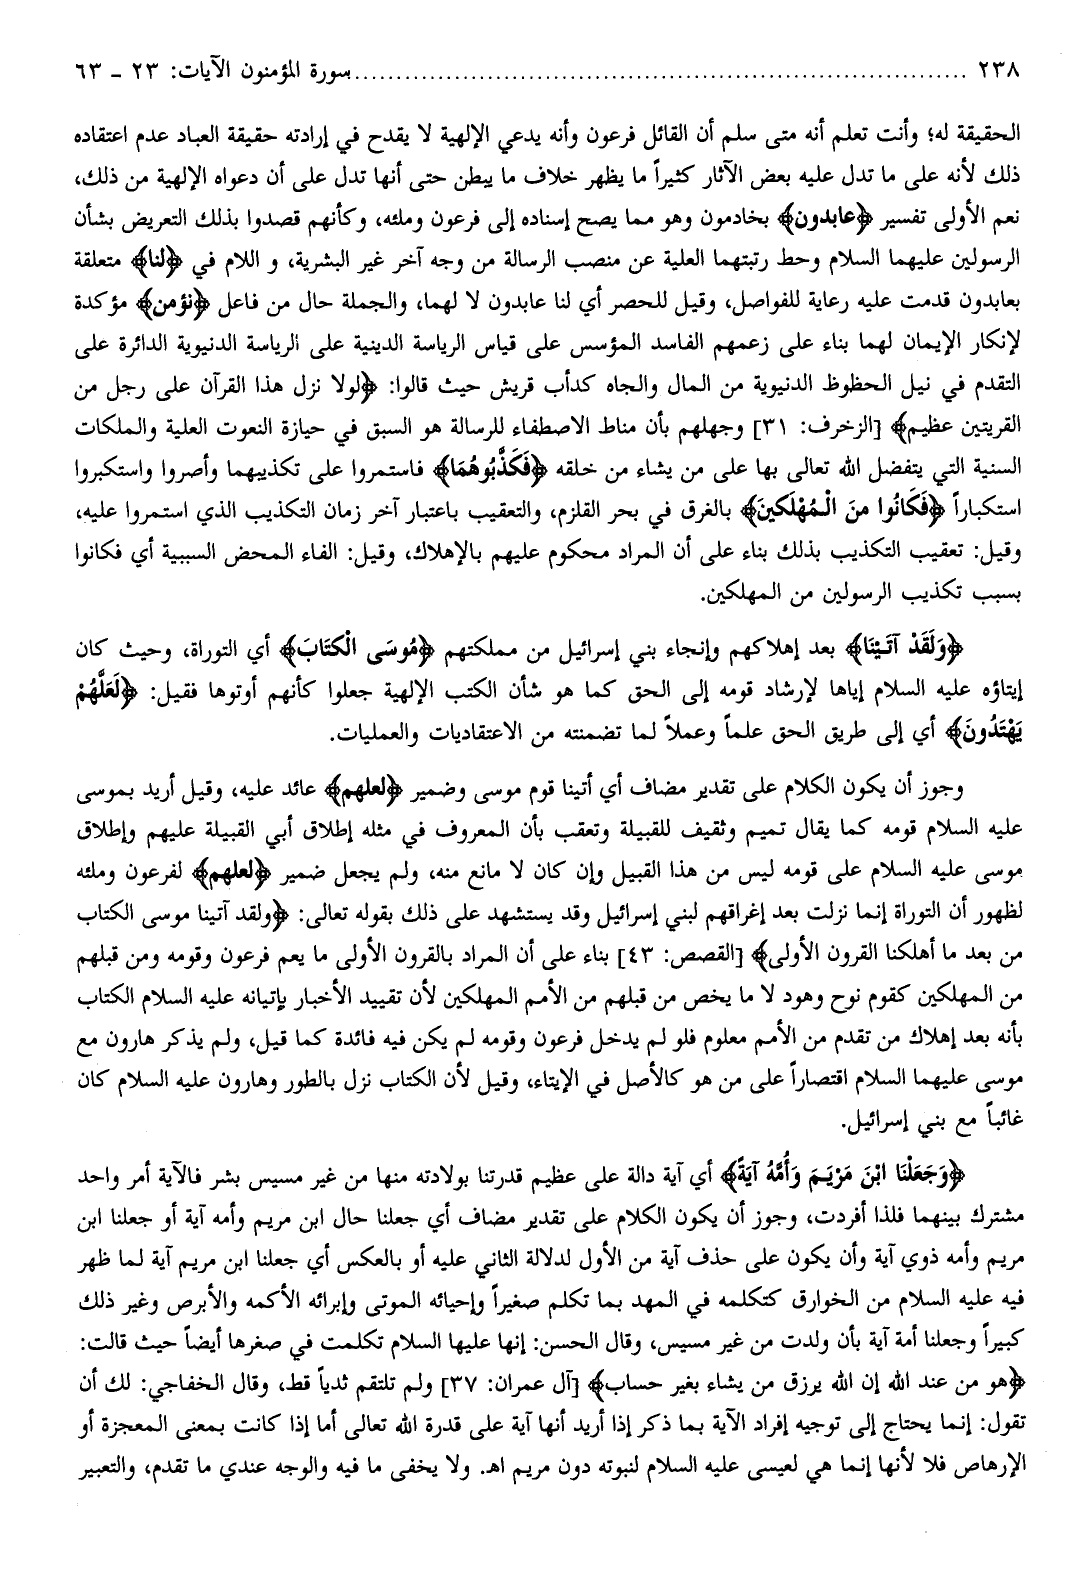 ٢٣٨ ........................................................................ سورة المؤمنون الآيات: ٢٣ - ٦٣
الحقيقة له؛ وأنت تعلم أنه متى سلم أن القائل فرعون وأنه يدعي الإلهية لا يقدح في إرادته حقيقة العباد عدم اعتقاده
ذلك لأنه على ما تدل عليه بعض الآثار كثيراً ما يظهر خلاف ما يبطن حتى أنها تدل على أن دعواه الإلهية من ذلك،
نعم الأولى تفسير ﴿عابدون﴾ بخادمون وهو مما يصح إسناده إلى فرعون وملئه، وكأنهم قصدوا بذلك التعريض بشأن
الرسولين عليهما السلام وحط رتبتهما العلية عن منصب الرسالة من وجه آخر غير البشرية، و اللام في ﴿لنا﴾ متعلقة
بعابدون قدمت عليه رعاية للفواصل، وقيل للحصر أي لنا عابدون لا لهما، والجملة حال من فاعل ﴿نؤمن﴾ مؤكدة
لإنكار الإيمان لهما بناء على زعمهم الفاسد المؤسس على قياس الرياسة الدينية على الرياسة الدنيوية الدائرة على
التقدم في نيل الحظوظ الدنيوية من المال والجاه كدأب قريش حيث قالوا: ﴿لولا نزل هذا القرآن على رجل من
القريتين عظيم﴾ [الزخرف: ٣١] وجهلهم بأن مناط الاصطفاء للرسالة هو السبق في حيازة النعوت العلية والملكات
السنية التي يتفضل الله تعالى بها على من يشاء من خلقه ﴿فَكَذَّبُوهُمَا﴾ فاستمروا على تكذيبهما وأصروا واستكبروا
استكباراً ﴿فَكَانُوا منَ الْمُهْلَكينَ﴾ بالغرق في بحر القلزم، والتعقيب باعتبار آخر زمان التكذيب الذي استمروا عليه،
وقيل: تعقيب التكذيب بذلك بناء على أن المراد محكوم عليهم بالإهلاك، وقيل: الفاء المحض السببية أي فكانوا
بسبب تكذيب الرسولين من المهلكين.
﴿وَلَقَدْ آتَيْنَا﴾ بعد إهلاكهم وإنجاء بني إسرائيل من مملكتهم ﴿مُوسَى الْكتَابَ﴾ أي التوراة، وحيث كان
إيتاؤه عليه السلام إياها لإرشاد قومه إلى الحق كما هو شأن الكتب الإلهية جعلوا كأنهم أوتوها فقيل: ﴿لَعَلَّهُمْ
يَهْتَدُونَ﴾ أي إلى طريق الحق علماً وعملاً لما تضمنته من الاعتقاديات والعمليات.
وجوز أن يكون الكلام على تقدير مضاف أي أتينا قوم موسى وضمير ﴿لعلهم﴾ عائد عليه، وقيل أريد بموسى
عليه السلام قومه كما يقال تميم وثقيف للقبيلة وتعقب بأن المعروف في مثله إطلاق أبي القبيلة عليهم وإطلاق
موسى عليه السلام على قومه ليس من هذا القبيل وإن كان لا مانع منه، ولم يجعل ضمير ﴿لعلهم﴾ لفرعون وملئه
لظهور أن التوراة إنما نزلت بعد إغراقهم لبني إسرائيل وقد يستشهد على ذلك بقوله تعالى: ﴿ولقد آتينا موسى الكتاب
من بعد ما أهلكنا القرون الأولى﴾ [القصص: ٤٣] بناء على أن المراد بالقرون الأولى ما يعم فرعون وقومه ومن قبلهم
من المهلكين كقوم نوح وهود لا ما يخص من قبلهم من الأمم المهلكين لأن تقييد الأخبار بإتيانه عليه السلام الكتاب
بأنه بعد إهلاك من تقدم من الأمم معلوم فلو لم يدخل فرعون وقومه لم يكن فيه فائدة كما قيل، ولم يذكر هارون مع
موسى عليهما السلام اقتصاراً على من هو كالأصل في الإيتاء، وقيل لأن الكتاب نزل بالطور وهارون عليه السلام كان
غائباً مع بني إسرائيل.
﴿وَجَعَلْنَا ابْنَ مَرْيَمَ وَأُمَّهُ آيَةً﴾ أي آية دالة على عظيم قدرتنا بولادته منها من غير مسيس بشر فالآية أمر واحد
مشترك بينهما فلذا أفردت، وجوز أن يكون الكلام على تقدير مضاف أي جعلنا حال ابن مريم وأمه آية أو جعلنا ابن
مريم وأمه ذوي آية وأن يكون على حذف آية من الأول لدلالة الثاني عليه أو بالعكس أي جعلنا ابن مريم آية لما ظهر
فيه عليه السلام من الخوارق كتكلمه في المهد بما تكلم صغيراً وإحيائه الموتى وإبرائه الأكمه والأبرص وغير ذلك
كبيراً وجعلنا أمة آية بأن ولدت من غير مسيس، وقال الحسن: إنها عليها السلام تكلمت في صغرها أيضاً حيث قالت:
﴿هو من عند الله إن الله يرزق من يشاء بغير حساب﴾ [آل عمران: ٣٧] ولم تلتقم ثدياً قط، وقال الخفاجي: لك أن
تقول: إنما يحتاج إلى توجيه إفراد الآية بما ذكر إذا أريد أنها آية على قدرة الله تعالى أما إذا كانت بمعنى المعجزة أو
الإرهاص فلا لأنها إنما هي لعيسى عليه السلام لنبوته دون مريم اهـ. ولا يخفى ما فيه والوجه عندي ما تقدم، والتعبير